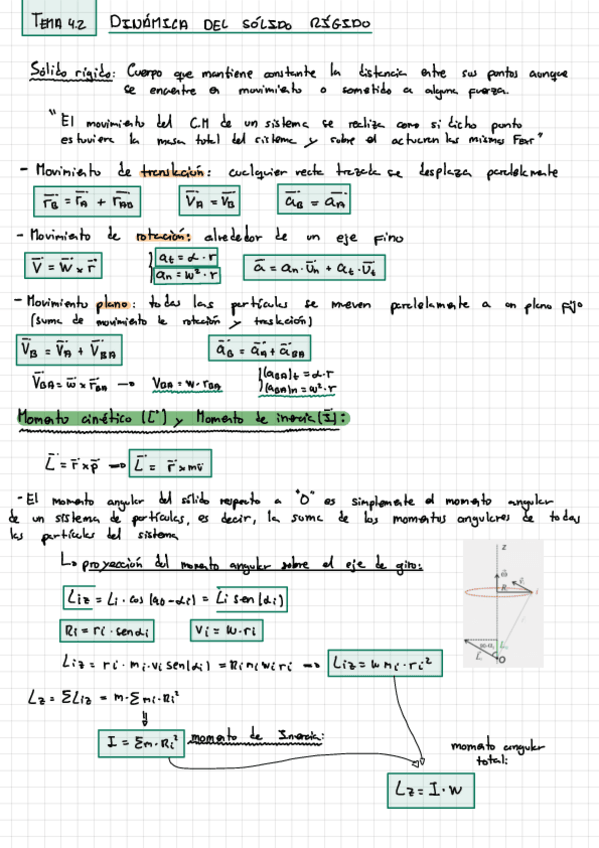 TEMA 4.2 DINÁMICA DEL SÓLIDO RÍGIDO
Sólido rígido: Cuerpo que mantiene constante la distancia entre sus puntos aunque
se encuentre en movimiento o sometido a alguna fuerza.
"El movimiento del C.M de un sistema se realiza como si dicho punto
estuviera la masa total del sistema y sobre el actuaran las mismas Fext"
- Movimiento de translación: cualquier recta trazada se desplaza paralelamente
r̄B = r̄A + r̄AB V̄A = V̄B āB = āA
- Movimiento de rotación: alrededor de un eje fino
V̄ = w̄ × r̄ at = α · r ā = an · ūn + at · ūt
an = w² · r
- Movimiento plano: todas las partículas se mueven paralelamente a un plano fijo
(suma de movimiento de rotación y traslación)
V̄B = V̄A + V̄BA āB = āA + āBA
V̄BA = w̄ × r̄BA → VBA = w · rBA (aBA)t = α · r
(aBA)n = w² · r
Momento cinético (L̄) y Momento de inercia (I):
L̄ = r̄ × p̄ → L̄ = r̄ × mv̄
- El momento angular del sólido respecto a "O" es simplemente el momento angular
de un sistema de partículas, es decir, la suma de los momentos angulares de todas
las partículas del sistema
↳ proyección del momento angular sobre el eje de giro:
Liz = Li · cos (90 - αi) = Li sen (αi)
Ri = ri · senαi Vi = w · ri
Liz = ri · mi · vi sen(αi) = Ri mi w ri → Liz = w mi · ri²
Lz = ΣLiz = m · Σmi · Ri²
I = Σm · Ri² momento de Inercia:
momento angular
total:
Lz = I · w
z
O